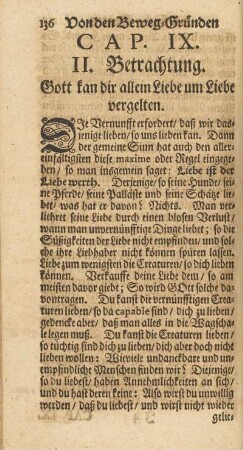 136 Von den Beweg-Gründen
CAP. IX.
II. Betrachtung.
Gott kan dir allein Liebe um Liebe
vergelten.
DIe Vernunfft erfordert/ daß wir das-
jenige lieben/ so uns lieben kan. Dann
der gemeine Sinn hat auch den aller-
einfältigsten diese maxime oder Regel eingege-
ben/ so man insgemein saget: Liebe ist der
Liebe werth. Derjenige/ so seine Hunde/ sei-
ne Pferde/ seine Palläste und seine Schätze lie-
bet/ was hat er davon? Nichts. Man ver-
liehret seine Liebe durch einen blosen Verlust/
wann man unvernünfftige Dinge liebet; so die
Süßigkeiten der Liebe nicht empfinden/ und sol-
che ihre Liebhaber nicht können spüren lassen.
Liebe zum wenigsten die Creaturen/ so dich lieben
können. Verkauffe deine Liebe dem/ so am
meisten davor giebt; So wird GOtt solche da-
vontragen. Du kanst die vernünfftigen Crea-
turen lieben/ so da capable sind/ dich zu lieben/
gedencke aber/ daß man alles in die Wagscha-
le legen muß. Du kanst die Creaturen lieben/
so tüchtig sind dich zu lieben/ dich aber doch nicht
lieben wollen: Wieviele undanckbare und un-
empfindliche Menschen finden wir? Diejenige/
so du liebest/ haben Annehmlichkeiten an sich/
und du hast deren keine: Also wirst du unwillig
werden/ daß du liebest/ und wirst nicht wieder
gelie-